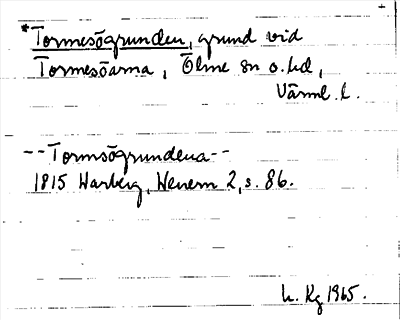 *Tormesögrunden, grund vid
Tormesöarna, Ölme sn o. hd,
Värml. l.
--Tormsögrundena--
1815 Warberg, Wenern 2, s. 86.
L. Kg 1965.